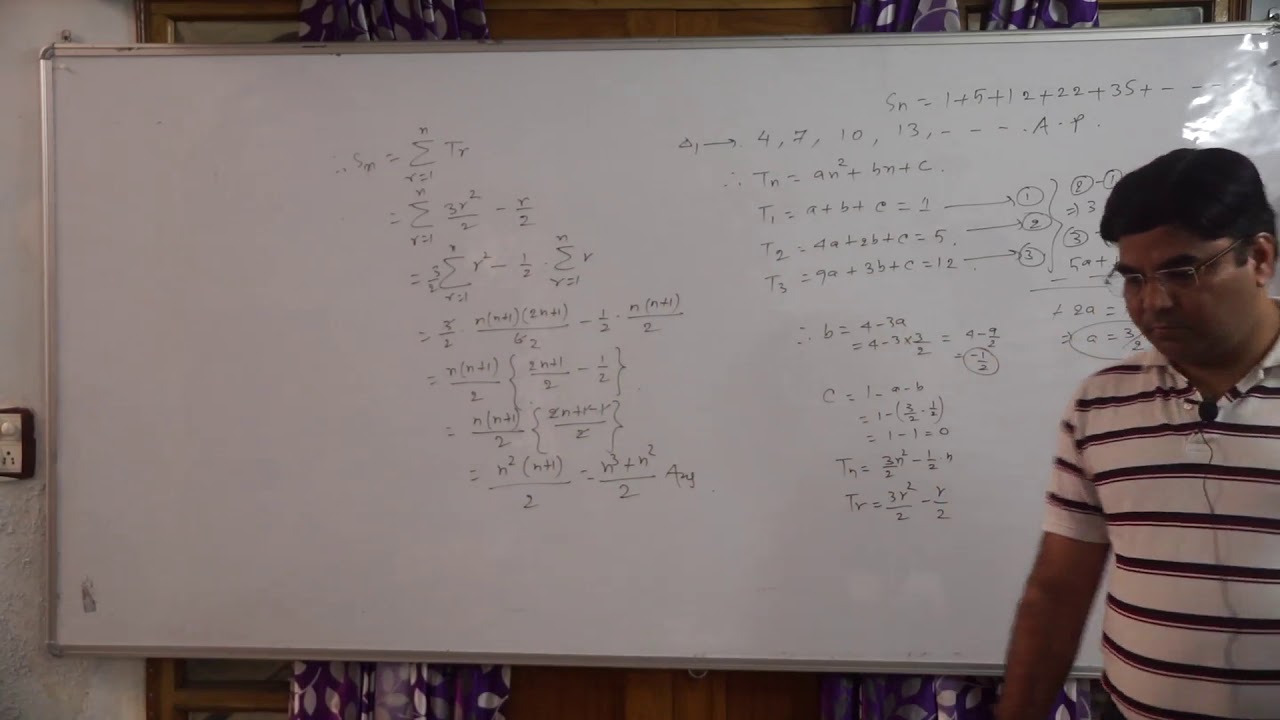 Sn = 1+5+12+22+35+- - - -
Δ₁ → 4, 7, 10, 13, - - - . A.P.
∴ Tn = an²+bn+c.
T₁ = a+b+c = 1 → ①
T₂ = 4a+2b+c = 5. → ②
T₃ = 9a+3b+c = 12. → ③
②-①
⇒ 3
③
5a+
2a =
⇒ a = 3/2
∴ b = 4-3a
= 4-3×3/2 = 4-9/2
= -1/2
C = 1-a-b
= 1-(3/2-1/2)
= 1-1=0
Tn = 3/2 n² - 1/2 · n
Tr = 3r²/2 - r/2
∴ Sn = ∑ⁿᵣ₌₁ Tr
= ∑ⁿᵣ₌₁ 3r²/2 - r/2
= 3/2 ∑ⁿᵣ₌₁ r² - 1/2 · ∑ⁿᵣ₌₁ r
= 3/2 · n(n+1)(2n+1)/6 2 - 1/2 · n(n+1)/2
= n(n+1)/2 { 2n+1/2 - 1/2 }
= n(n+1)/2 { 2n+1-1/2 }
= n²(n+1)/2 = n³+n²/2 Ans